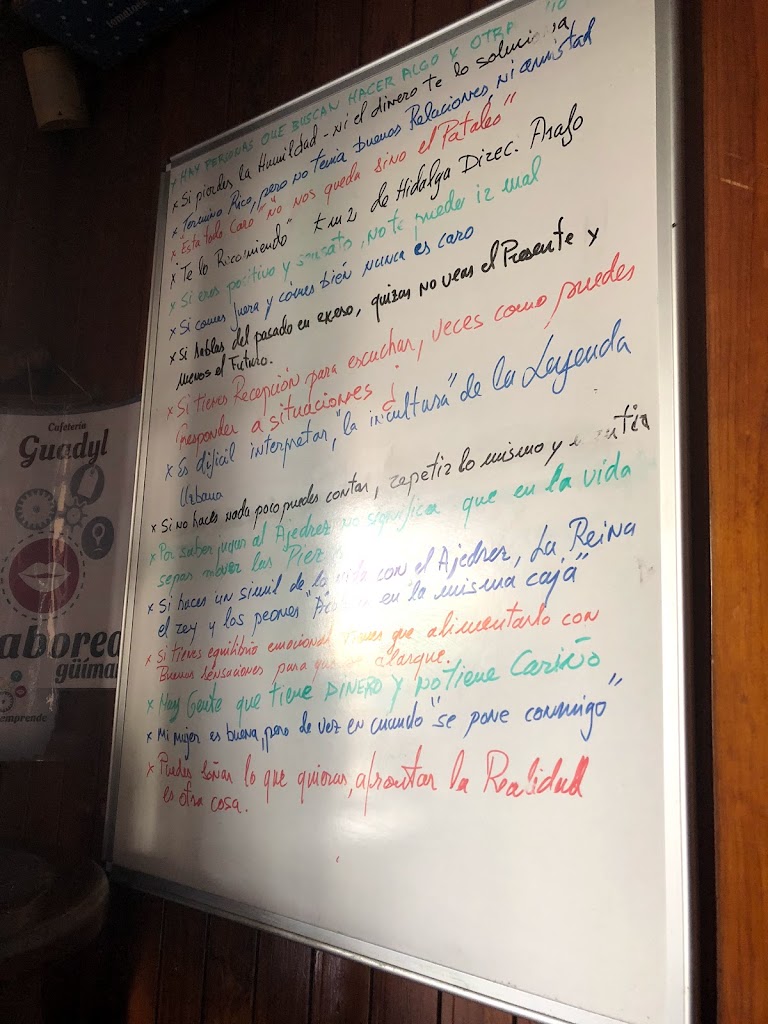 tomatoe
× HAY PERSONAS QUE BUSCAN HACER ALGO Y OTRA
× Si pierdes la Humildad - Ni el dinero te lo soluciona
× Termino Rico, pero no tenia buenas Relaciones, ni amistad
× "Esta todo Caro" "No nos queda sino el Pataleo"
× "Te lo Ricomiendo" Km 2 de Hidalga Direc. Arafo
× Si eres positivo y sensato, No te puede ir mal
× Si comes fuera y comes bién nunca es caro
× Si hablas del pasado en exeso, quizas no veas el Presente y
menos el Futuro.
× Si tienes Recepción para escuchar, veces como puedes
responder a situaciones ¿
× Es dificil interpretar, "la incultura" de la Leyenda
Urbana
× Si no haces nada poco puedes contar, repetir lo mismo y
× Por saber jugar al Ajedrez no significa que en la vida
sepas mover las
× Si haces un simil de la vida con el Ajedrez, La Reina
el rey y los peones en la misma caja"
× Si tienes equilibrio emocional tienes que alimentarlo con
Buenas sensaciones para que alargue.
× Hay Gente que tiene DINERO y NO tiene Cariño
× Mi mujer es buena, pero de vez en cuando "se pone conmigo"
× Puedes soñar lo que quieras, afrontar la Realidad
es otra cosa.
Cafetería
Guadyl
aborea
güímar
emprende